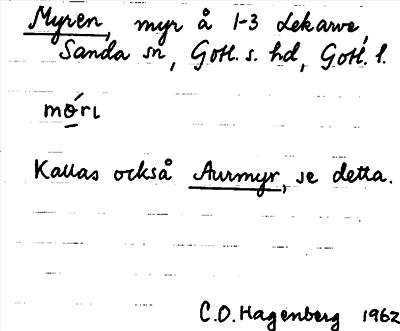 Myren, myr å 1-3 Lekarve,
Sanda sn, Gotl. s. hd, Gotl. l.
móri
Kallas också Aurmyr, se detta.
C.O. Hagenberg 1962